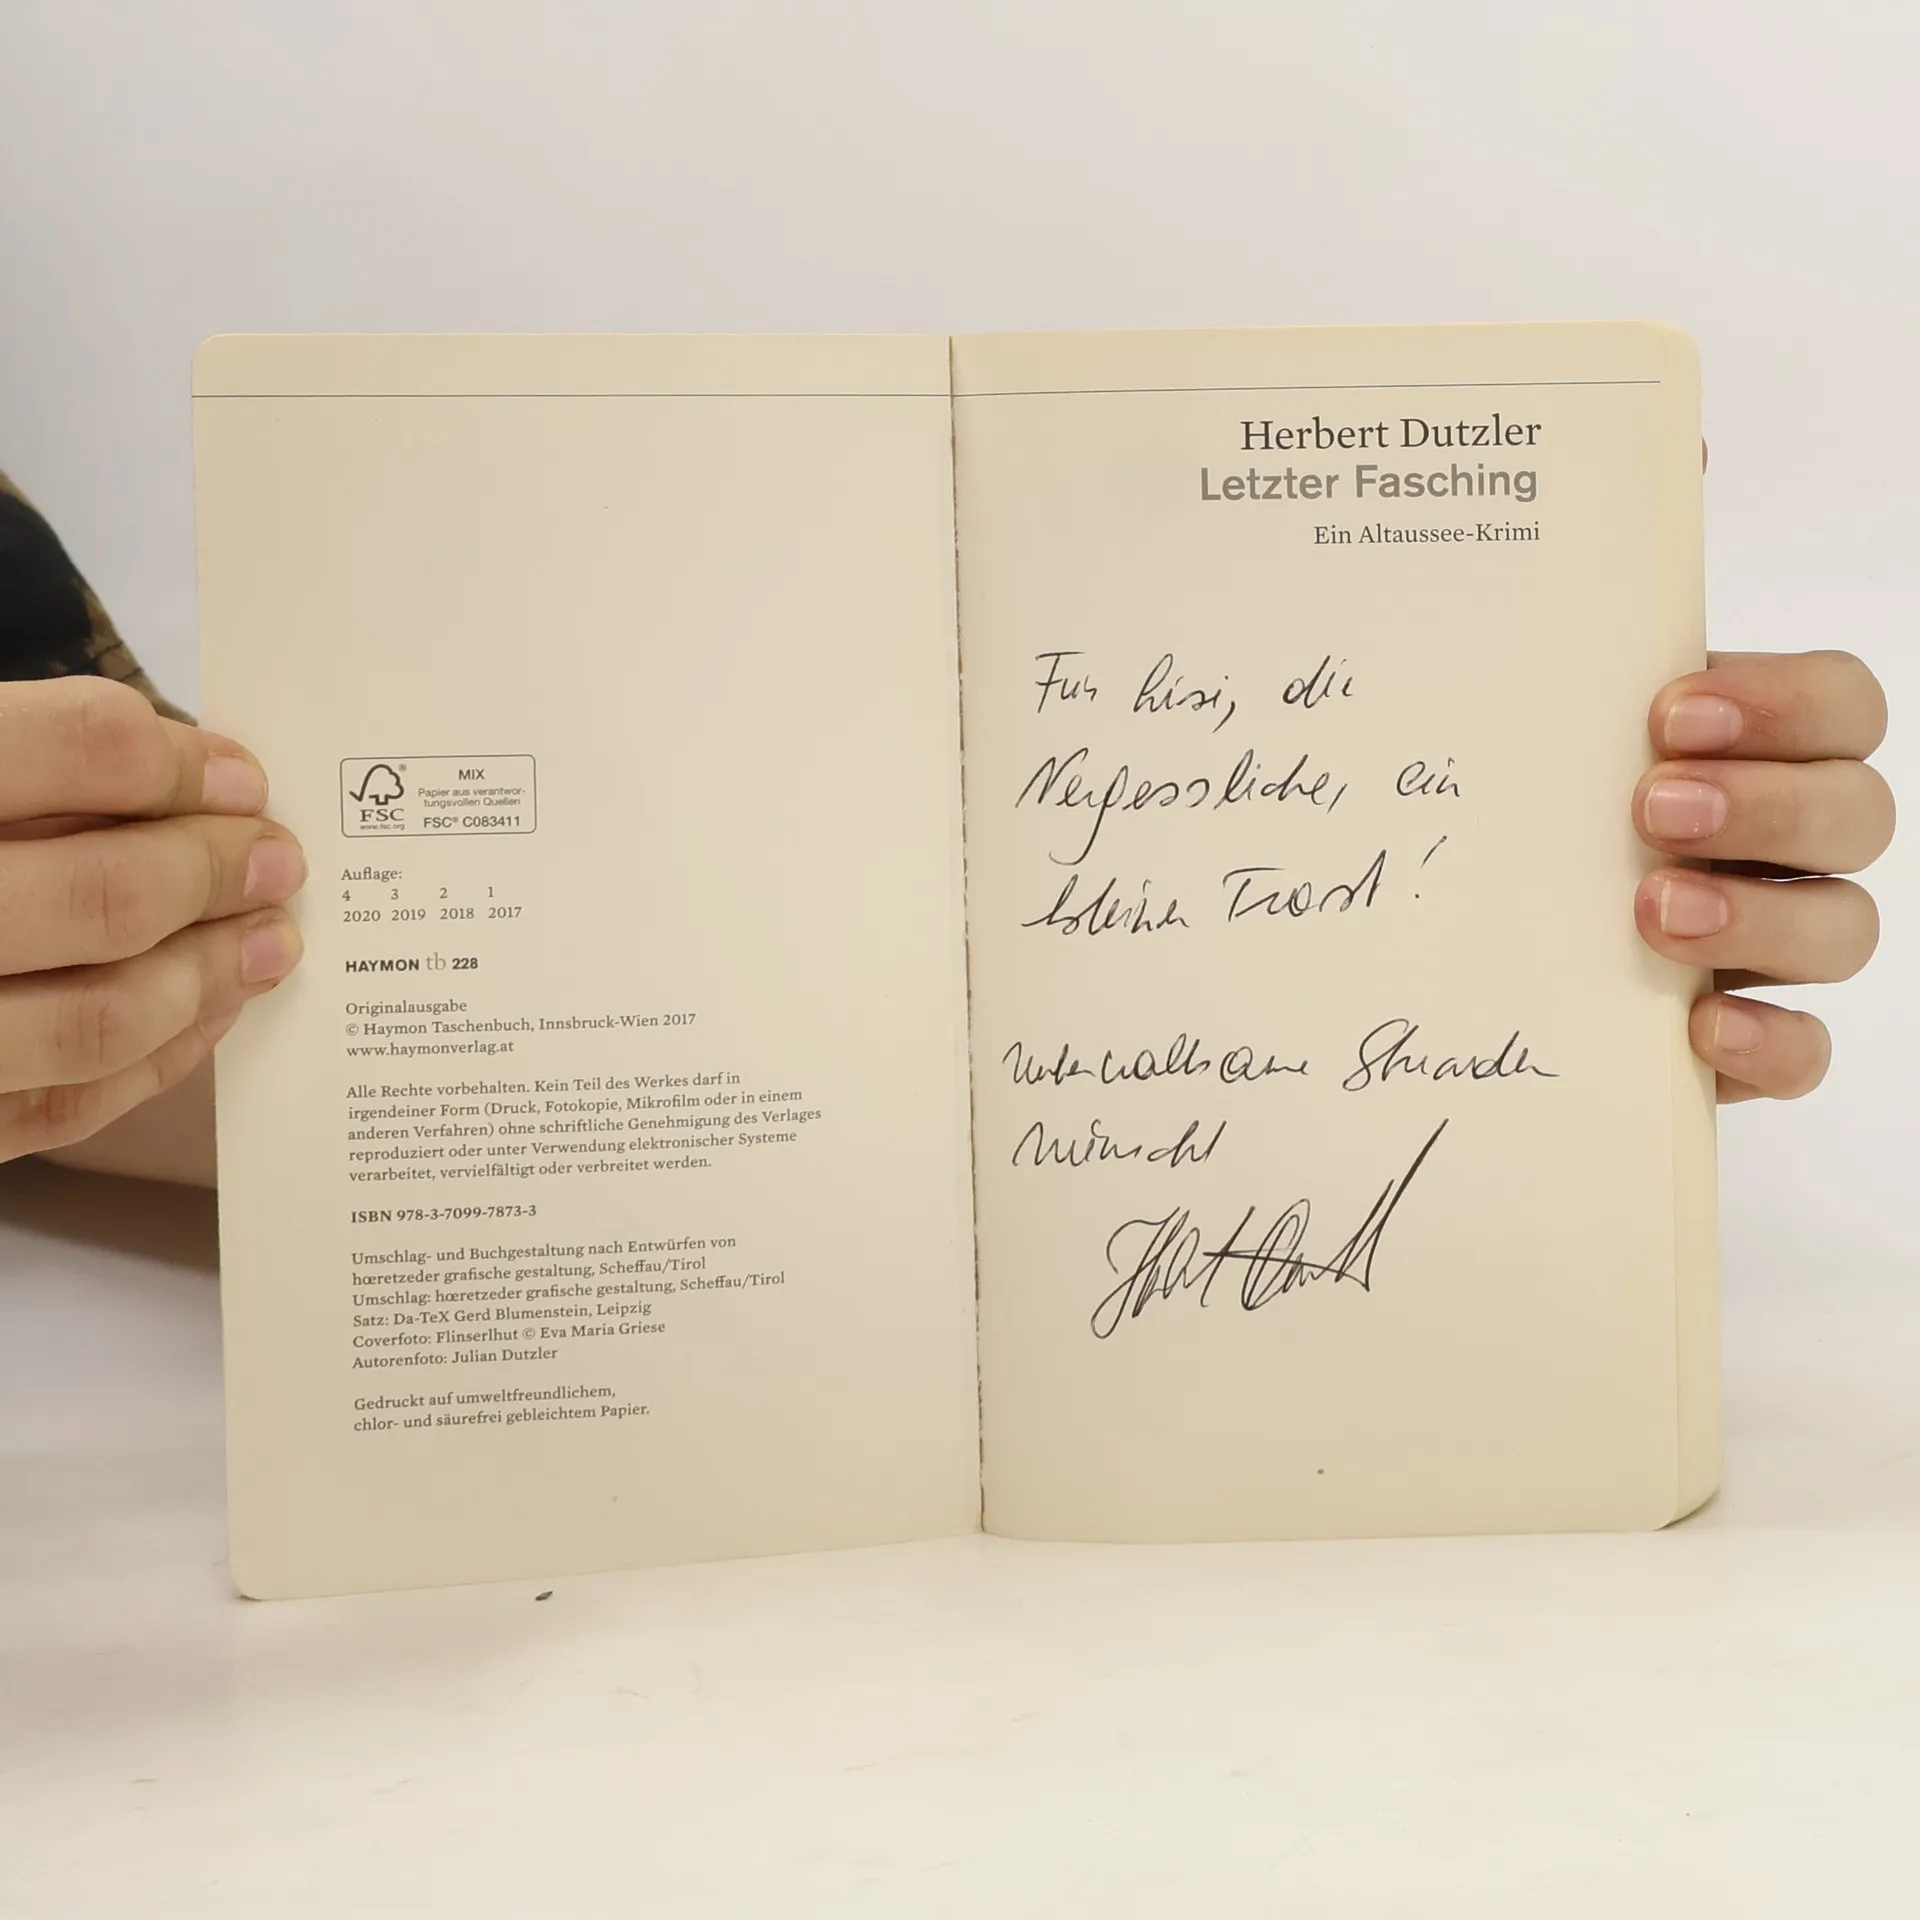 MIX
Papier aus verantwor-
tungsvollen Quellen
FSC® C083411
FSC
www.fsc.org
Auflage:
4 3 2 1
2020 2019 2018 2017
HAYMON tb 228
Originalausgabe
© Haymon Taschenbuch, Innsbruck-Wien 2017
www.haymonverlag.at
Alle Rechte vorbehalten. Kein Teil des Werkes darf in
irgendeiner Form (Druck, Fotokopie, Mikrofilm oder in einem
anderen Verfahren) ohne schriftliche Genehmigung des Verlages
reproduziert oder unter Verwendung elektronischer Systeme
verarbeitet, vervielfältigt oder verbreitet werden.
ISBN 978-3-7099-7873-3
Umschlag- und Buchgestaltung nach Entwürfen von
hœretzeder grafische gestaltung, Scheffau/Tirol
Umschlag: hœretzeder grafische gestaltung, Scheffau/Tirol
Satz: Da-TeX Gerd Blumenstein, Leipzig
Coverfoto: Flinserlhut © Eva Maria Griese
Autorenfoto: Julian Dutzler
Gedruckt auf umweltfreundlichem,
chlor- und säurefrei gebleichtem Papier.
Herbert Dutzler
Letzter Fasching
Ein Altaussee-Krimi
Für Lisi, die
Vergessliche, ein
kleiner Trost!
Unterhaltsame Stunden
wünscht